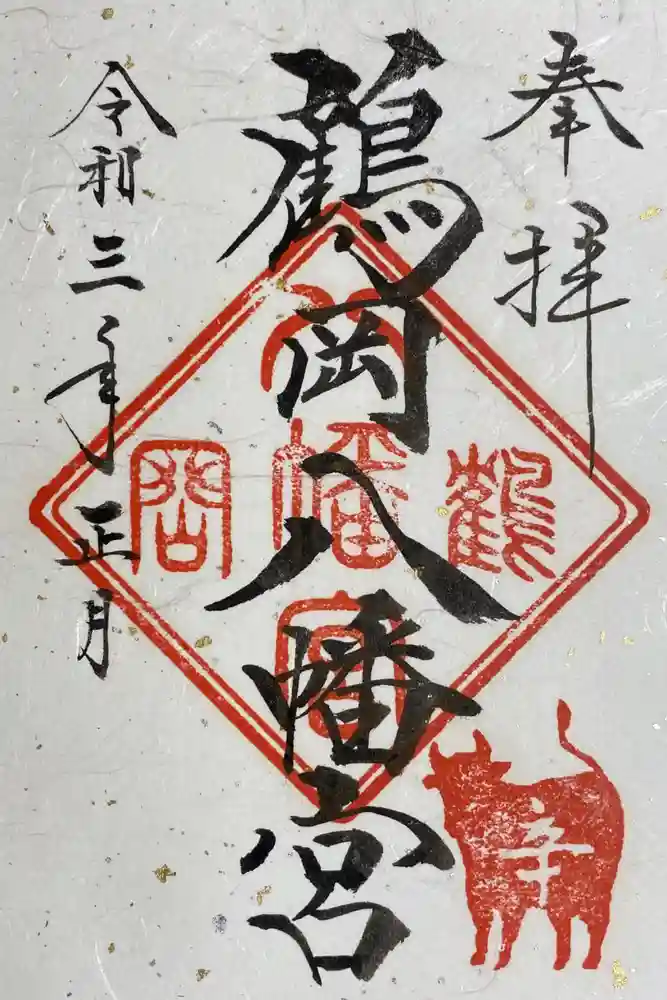 奉拝
鶴岡八幡宮
令和三年正月
八
鶴
幡
岡
宮
辛